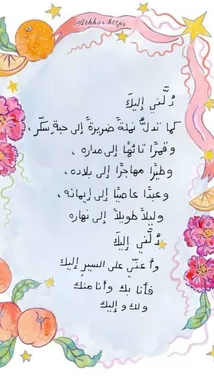 Athkar.https
دُلَّني إليكَ
كما تدلُّ نملةً ضريرةً إلى حبة سكّر ،
وقمرًا تائهًا إلى مداره ،
وطيرًا مهاجرًا إلى بلاده ،
وعبدًا عاصيًا إلى إيمانه ،
وليلًا طويلًا إلى نهاره
دُلَّني إليكَ
وأعنّي على السيرِ إليك
فأنا بك وأنا منك
ولك وإليك